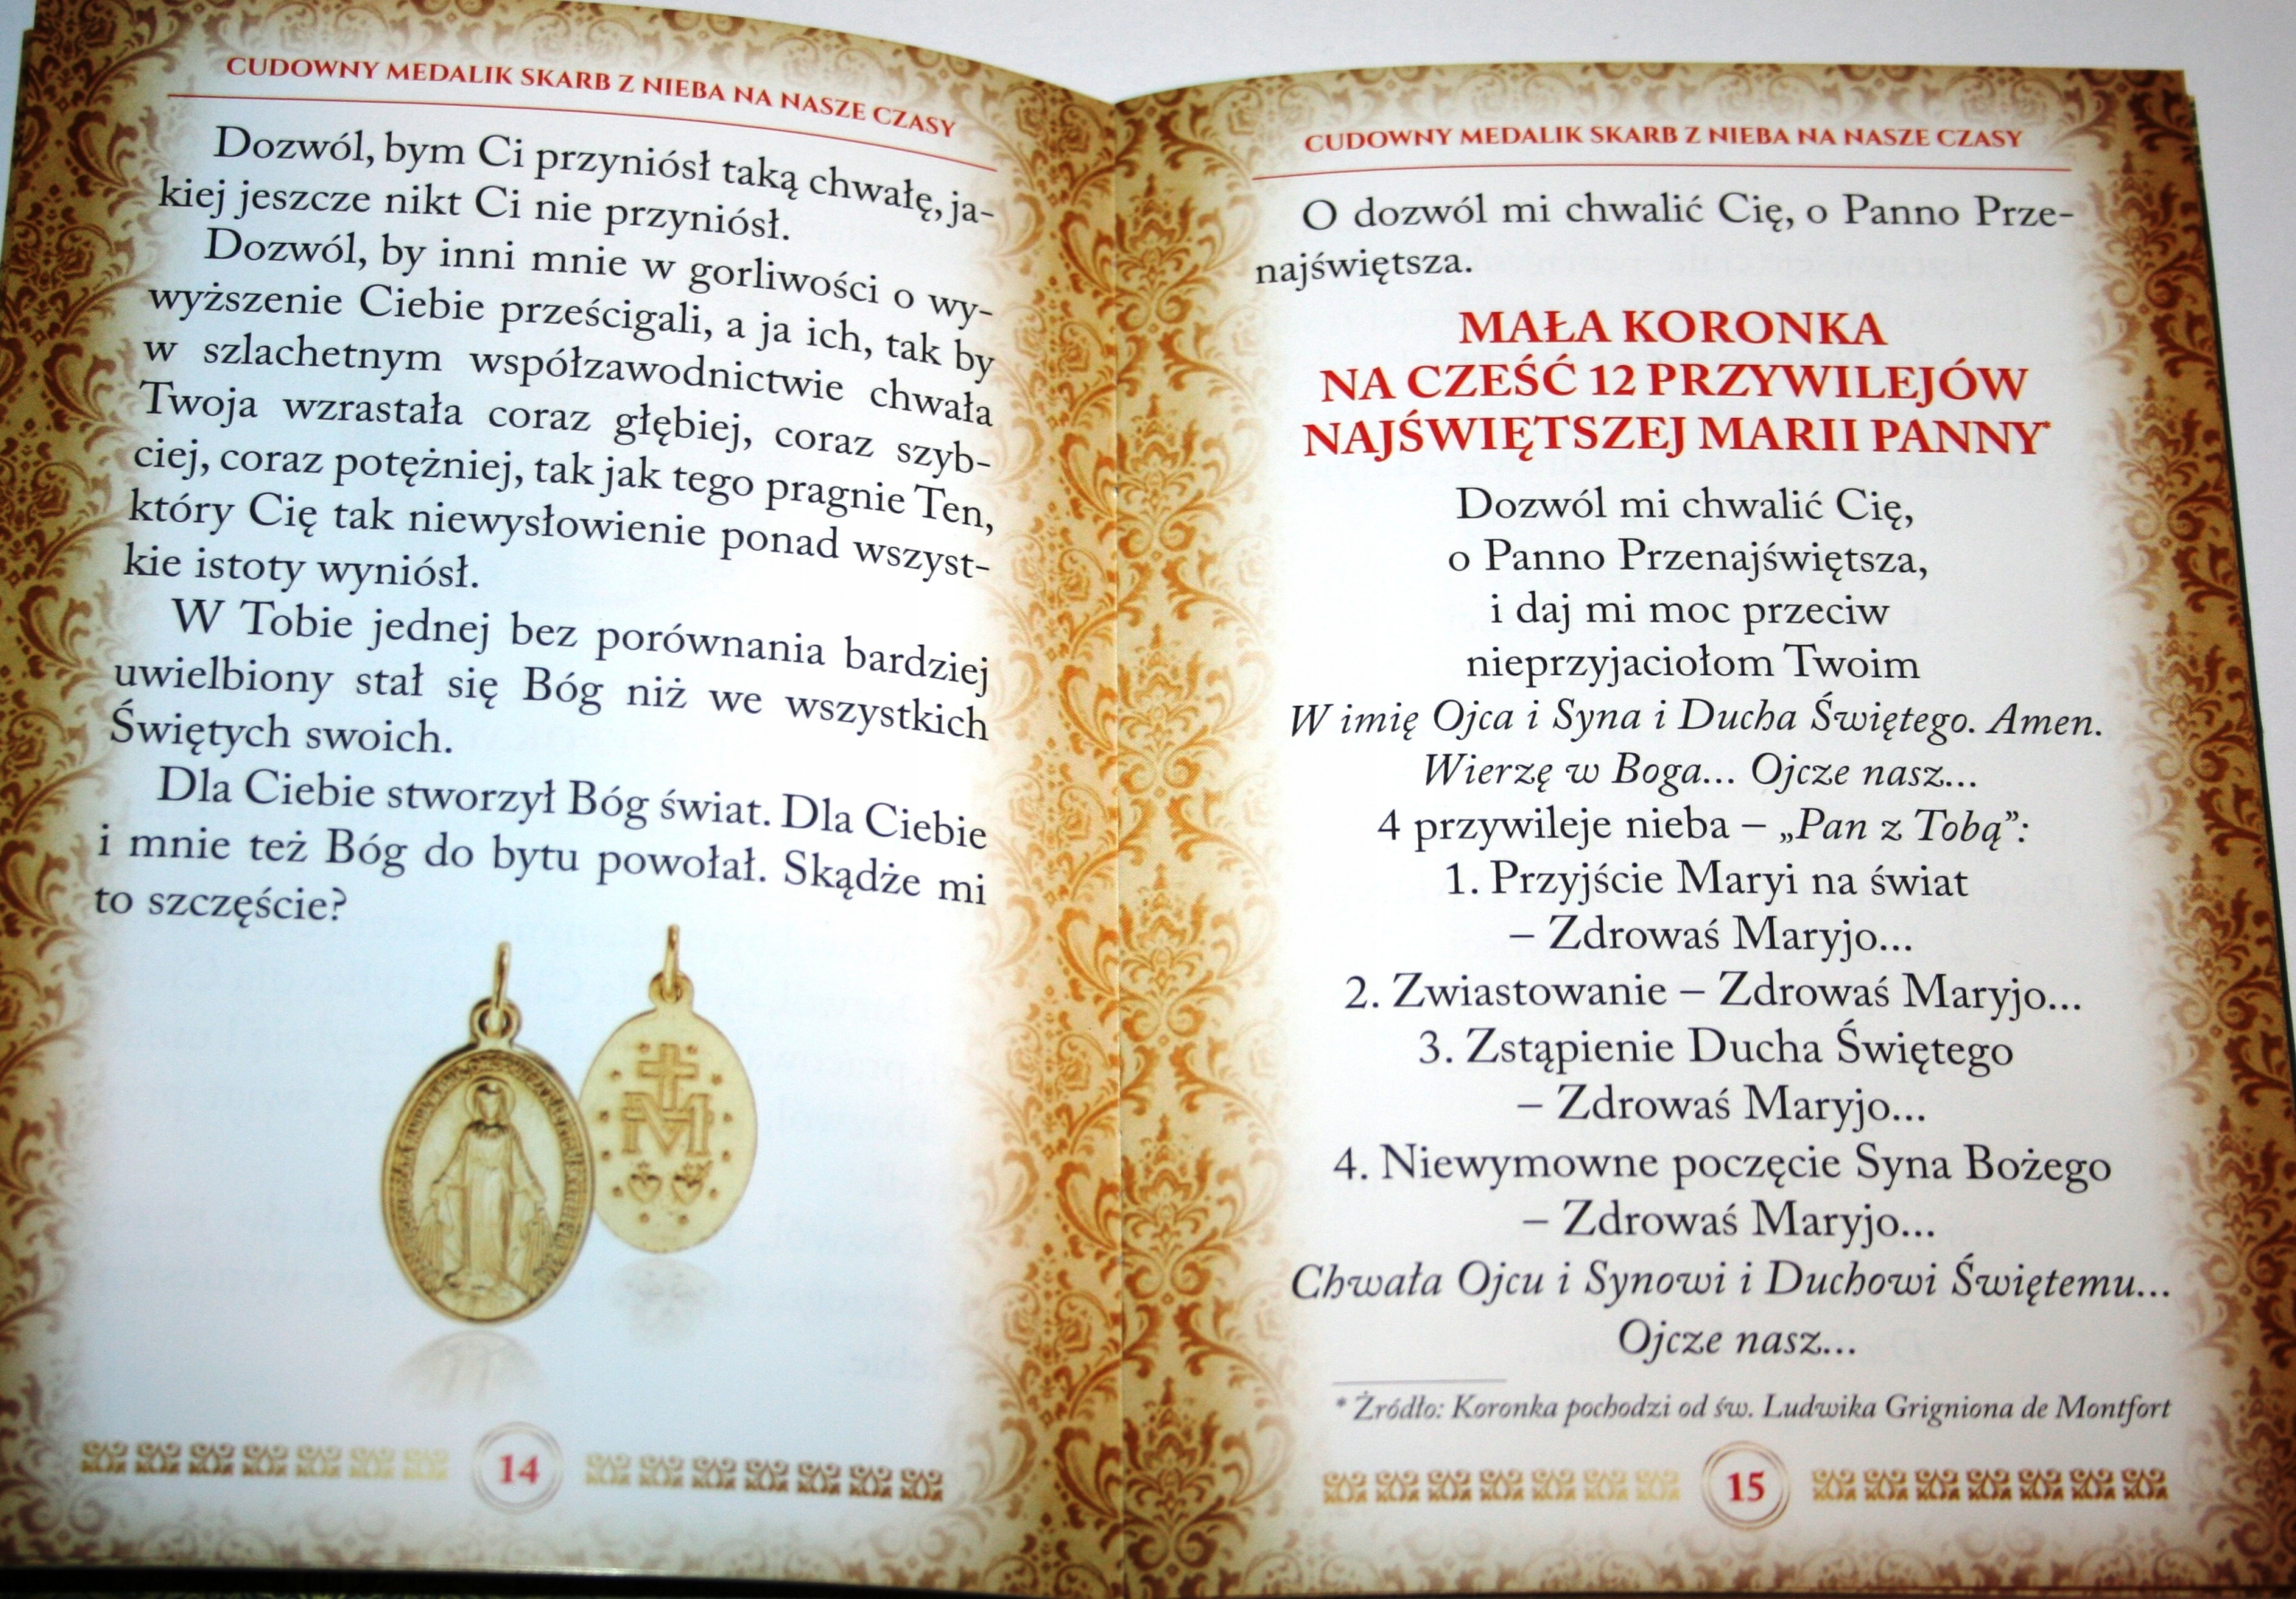 CUDOWNY MEDALIK SKARB Z NIEBA NA NASZE CZASY
Dozwól, bym Ci przyniósł taką chwałę, ja-
kiej jeszcze nikt Ci nie przyniósł.
Dozwól, by inni mnie w gorliwości o wy-
wyższenie Ciebie prześcigali, a ja ich, tak by
w szlachetnym współzawodnictwie chwała
Twoja wzrastała coraz głębiej, coraz szyb-
ciej, coraz potężniej, tak jak tego pragnie Ten,
który Cię tak niewysłowienie ponad wszyst-
kie istoty wyniósł.
W Tobie jednej bez porównania bardziej
uwielbiony stał się Bóg niż we wszystkich
Świętych swoich.
Dla Ciebie stworzył Bóg świat. Dla Ciebie
i mnie też Bóg do bytu powołał. Skądże mi
to szczęście?
M
14
CUDOWNY MEDALIK SKARB Z NIEBA NA NASZE CZASY
O dozwól mi chwalić Cię, o Panno Prze-
najświętsza.
MAŁA KORONKA
NA CZEŚĆ 12 PRZYWILEJÓW
NAJŚWIĘTSZEJ MARII PANNY*
Dozwól mi chwalić Cię,
o Panno Przenajświętsza,
i daj mi moc przeciw
nieprzyjaciołom Twoim
W imię Ojca i Syna i Ducha Świętego. Amen.
Wierzę w Boga... Ojcze nasz...
4 przywileje nieba – „Pan z Tobą”:
1. Przyjście Maryi na świat
– Zdrowaś Maryjo...
2. Zwiastowanie – Zdrowaś Maryjo...
3. Zstąpienie Ducha Świętego
– Zdrowaś Maryjo...
4. Niewymowne poczęcie Syna Bożego
– Zdrowaś Maryjo...
Chwała Ojcu i Synowi i Duchowi Świętemu...
Ojcze nasz...
* Źródło: Koronka pochodzi od św. Ludwika Grigniona de Montfort
15